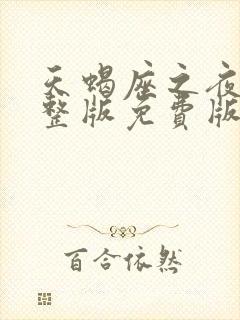 天蝎座之夜
整版免费版
百合依然